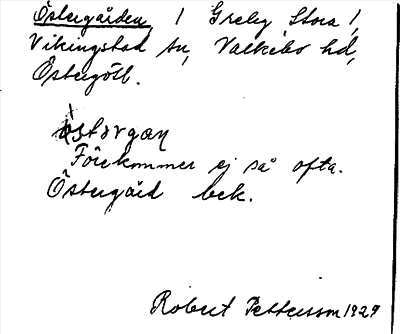 Östergården, 1 Greby Stora 1,
Vikingstad sn, Valkebo hd,
Östergötl.
östərgan
Förekommer ej så ofta.
Östergård bek.
Robert Pettersson 1929